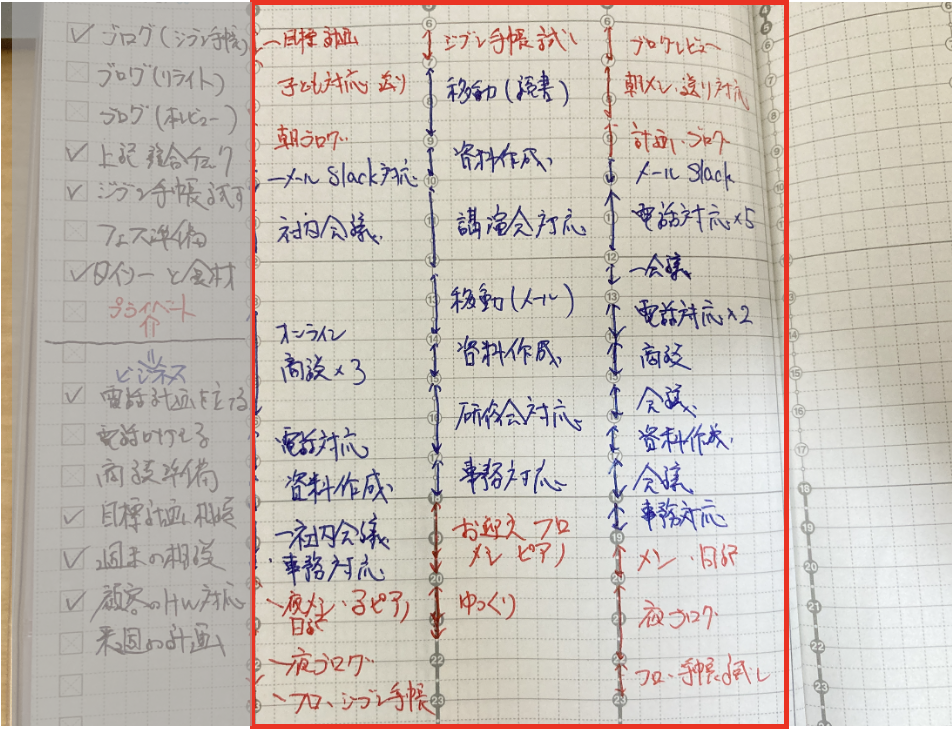 ブログ(ジブン手帳)
ブログ(リライト)
ブログ(本レビュー)
上記複合チェック
ジブン手帳試す
フェス準備
ダイソーと食材
プライベート
ビジネス
電話計画を立てる
電話かける
商談準備
目標計画、相談
週末の相談
顧客のHW対応
来週の計画
目標計画
子ども対応 送り
朝ブログ
メール Slack対応
社内会議
オンライン
商談×3
電話対応
資料作成
社内会議
事務対応
夜メシ・子ピアノ
夜ブログ
フロ、ジブン手帳
6
ジブン手帳試し
移動(読書)
9
資料作成
10
講演会対応
13
移動(メール)
14
資料作成
15
16
研修会対応
17
事務対応
お迎え フロ
メシ ピアノ
20
ゆっくり
22
23
6
ブログレビュー
朝メシ・送り対応
計画、ブログ
メール Slack
電話対応×5
12
会議
13
電話対応×2
商談
会議
資料作成
会議
事務対応
19
メシ・
夜ブログ
フロ、手帳試し
23
6
7
8
9
10
15
17
18
19
20
21
22
23